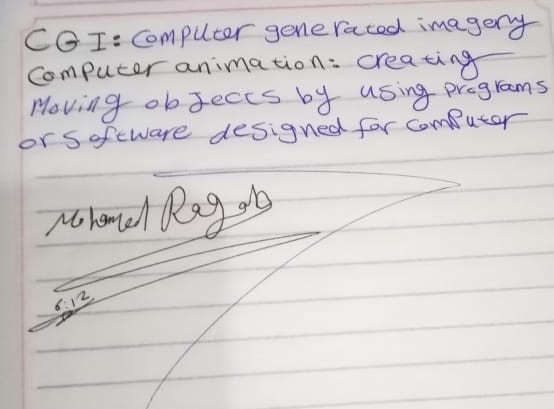 CGI: Computer generated imagery
Computer animation: creating
Moving objects by using programs
or software designed for computer
Mohamed Ragab
6:12